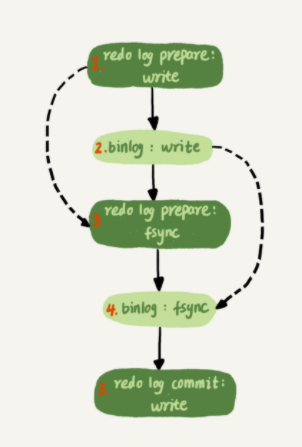 1. redo log prepare:
write
2. binlog : write
3 redo log prepare:
fsync
4. binlog : fsync
5. redo log commit:
write